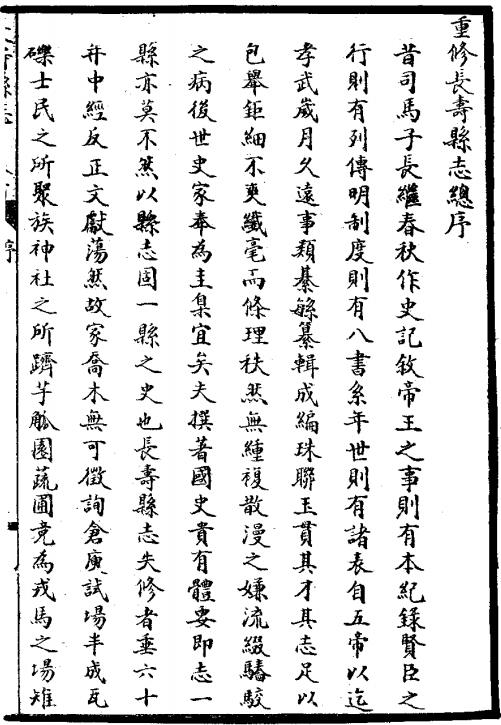 重修長壽縣志總序
昔司馬子長繼春秋作史記敘帝王之事則有本紀錄賢臣之
行則有列傳明制度則有八書系年世則有諸表自五帝以迄
孝武歲月久遠事類綦緐纂輯成編珠聯玉貫其才其志足以
包舉鉅細不爽纖毫而條理秩然無緟複散漫之嫌流綴駮
之病後世史家奉為圭臬宜矣夫撰著國史貴有體要即志一
縣亦莫不然以縣志固一縣之史也長壽縣志失修者垂六十
年中經反正文獻蕩然故家喬木無可徵詢倉庾試場半成瓦
礫士民之所聚族神社之所躋芋觚園蔬圃竟為戎馬之場雉
序